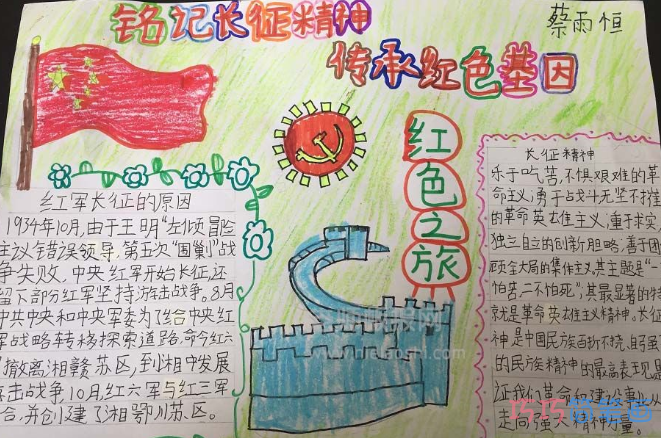 铭记长征精神
传承红色基因
蔡雨恒
红色之旅
红军长征的原因
1934年10月,由于王明"左倾冒险
主议错误领导,第五次"围剿"战
争失败,中央红军开始长征,还
留下部分红军坚持游击战争。8月
中共中央和中央军委为了给中央红
军战略转移探索道路,命令红六
撤离湘赣苏区,到湘中发展
游击战争,10月,红六军与红三军
合,并创建了湘鄂川苏区。
长征精神
乐于吃苦,不惧艰难的革
命主义;勇于战斗无坚不摧
的革命英雄主义;重于求实,
独立自的创新胆略;善于团
顾全大局的集体主义。其主题是"一
怕苦,二不怕死",其最显著的特
就是革命英雄主义精神。长征
神是中国民族百折不挠,自强
的民族精神的最高表现,是
证我们革命和建设事业从
走向强大精神力量。